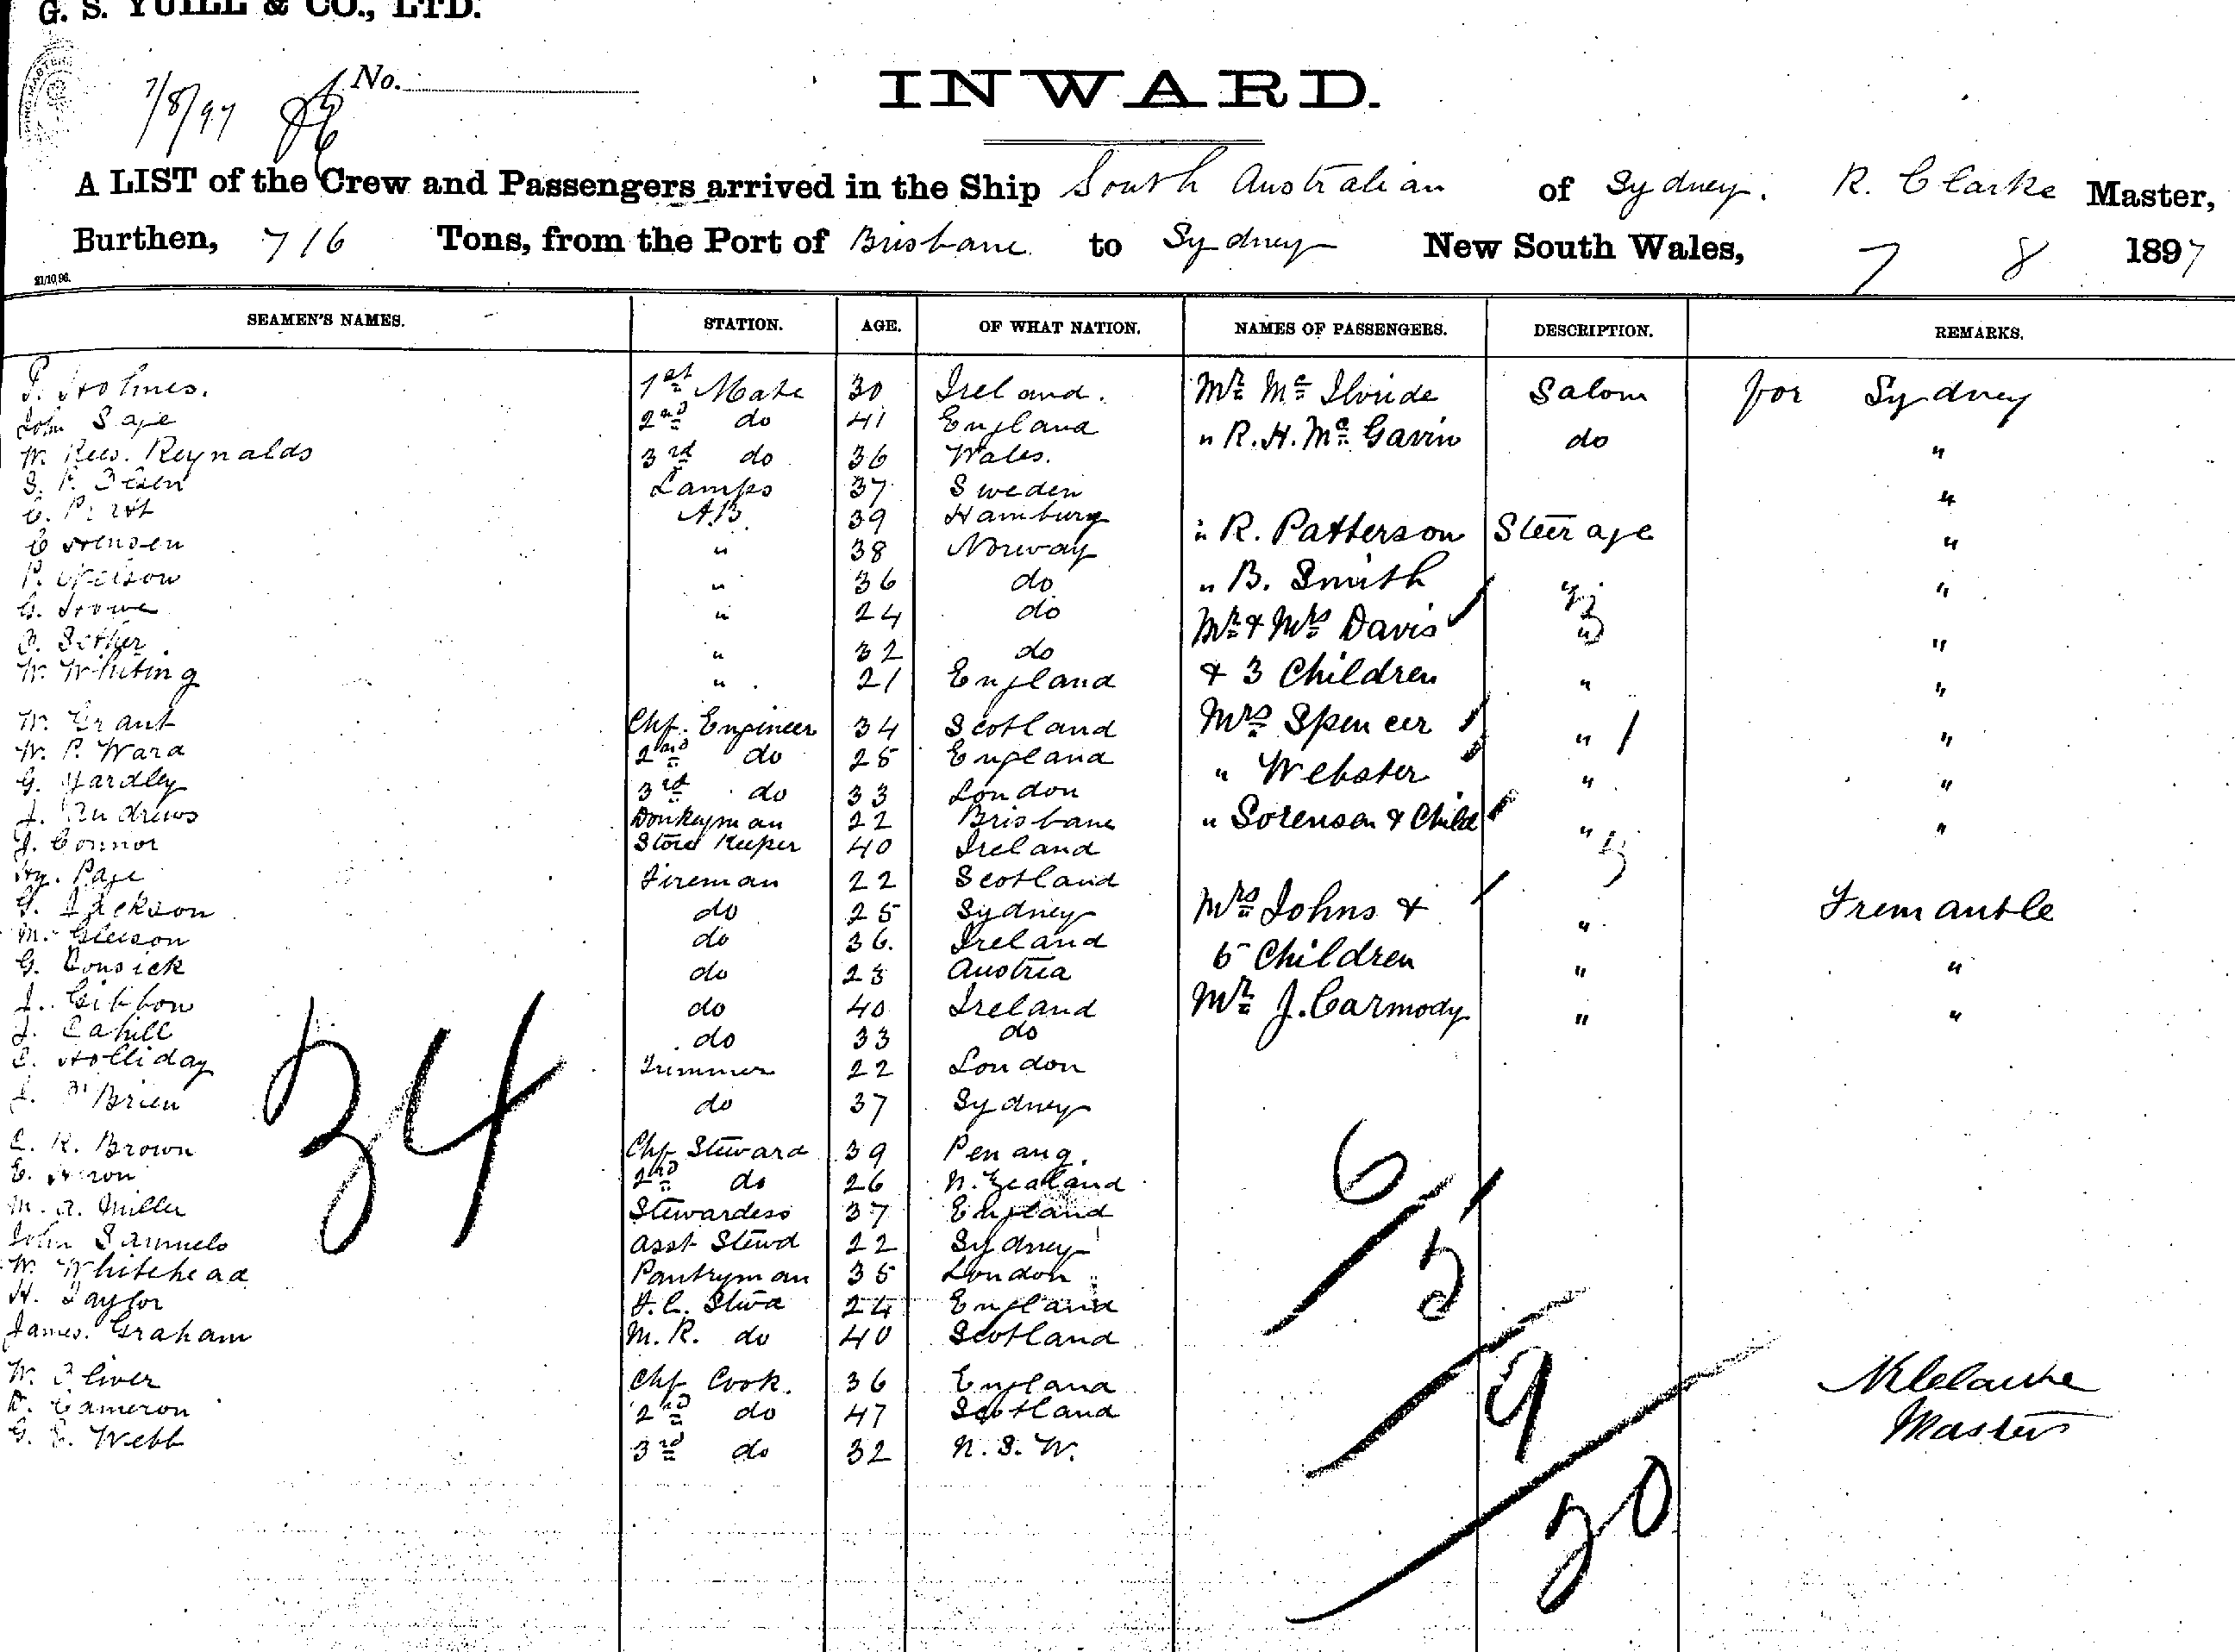 G. S. YUILL & CO., LTD.
No.
7/8/97
INWARD.
A LIST of the Crew and Passengers arrived in the Ship South Australian of Sydney. R. Clarke Master,
Burthen, 716 Tons, from the Port of Brisbane to Sydney New South Wales, 7 8 1897
21/10/96.
SEAMEN'S NAMES. STATION. AGE. OF WHAT NATION. NAMES OF PASSENGERS. DESCRIPTION. REMARKS.
P. Holmes. 1st Mate 30 Ireland. Mr Mc Ilvride Saloon for Sydney
John Sage 2nd do 41 England " R. H. Mc Gavin do "
W. Rees. Reynalds 3rd do 36 Wales.
S. P. Lamps 37 Sweden "
C. A.B. 39 Hamburg " R. Patterson Steerage "
" 38 Norway
P. Neilson " 36 do " B. Smith " "
G. " 24 do Mr & Mrs Davis " "
" 32 do
W. Whiting " 21 England & 3 Children " "
W. Grant Chf. Engineer 34 Scotland Mrs Spencer " 1 "
W. P. Ward 2nd do 25 England " Webster " "
G. Yardley 3rd do 33 London
J. Andrews Donkeyman 22 Brisbane " Sorensen & Child " "
J. Connor Store Keeper 40 Ireland
Hy. Page Fireman 22 Scotland
Jackson do 25 Sydney Mrs Johns & " Fremantle
M. Gleeson do 36. Ireland
G. Cousick do 23 Austria 5 Children " "
J. Gibbon do 40 Ireland Mr J. Carmody " "
J. Cahill do 33 do
C. Holliday Trimmer 22 London
J. O'Brien do 37 Sydney
34
C. R. Brown Chf Steward 39 Penang.
E. Heron 2nd do 26 N. Zealand
M. A. Miller Stewardess 37 England
John Samuels Asst Stewd 22 Sydney
W. Whitehead Pantryman 35 London
H. Taylor F.C. Stwd 24 England
James. Graham M. R. do 40 Scotland
W. Oliver Chf Cook. 36 England
D. Cameron 2nd do 47 Scotland
G. E. Webb 3rd do 32 N. S. W.
6
5
9
20
R Clarke
Master